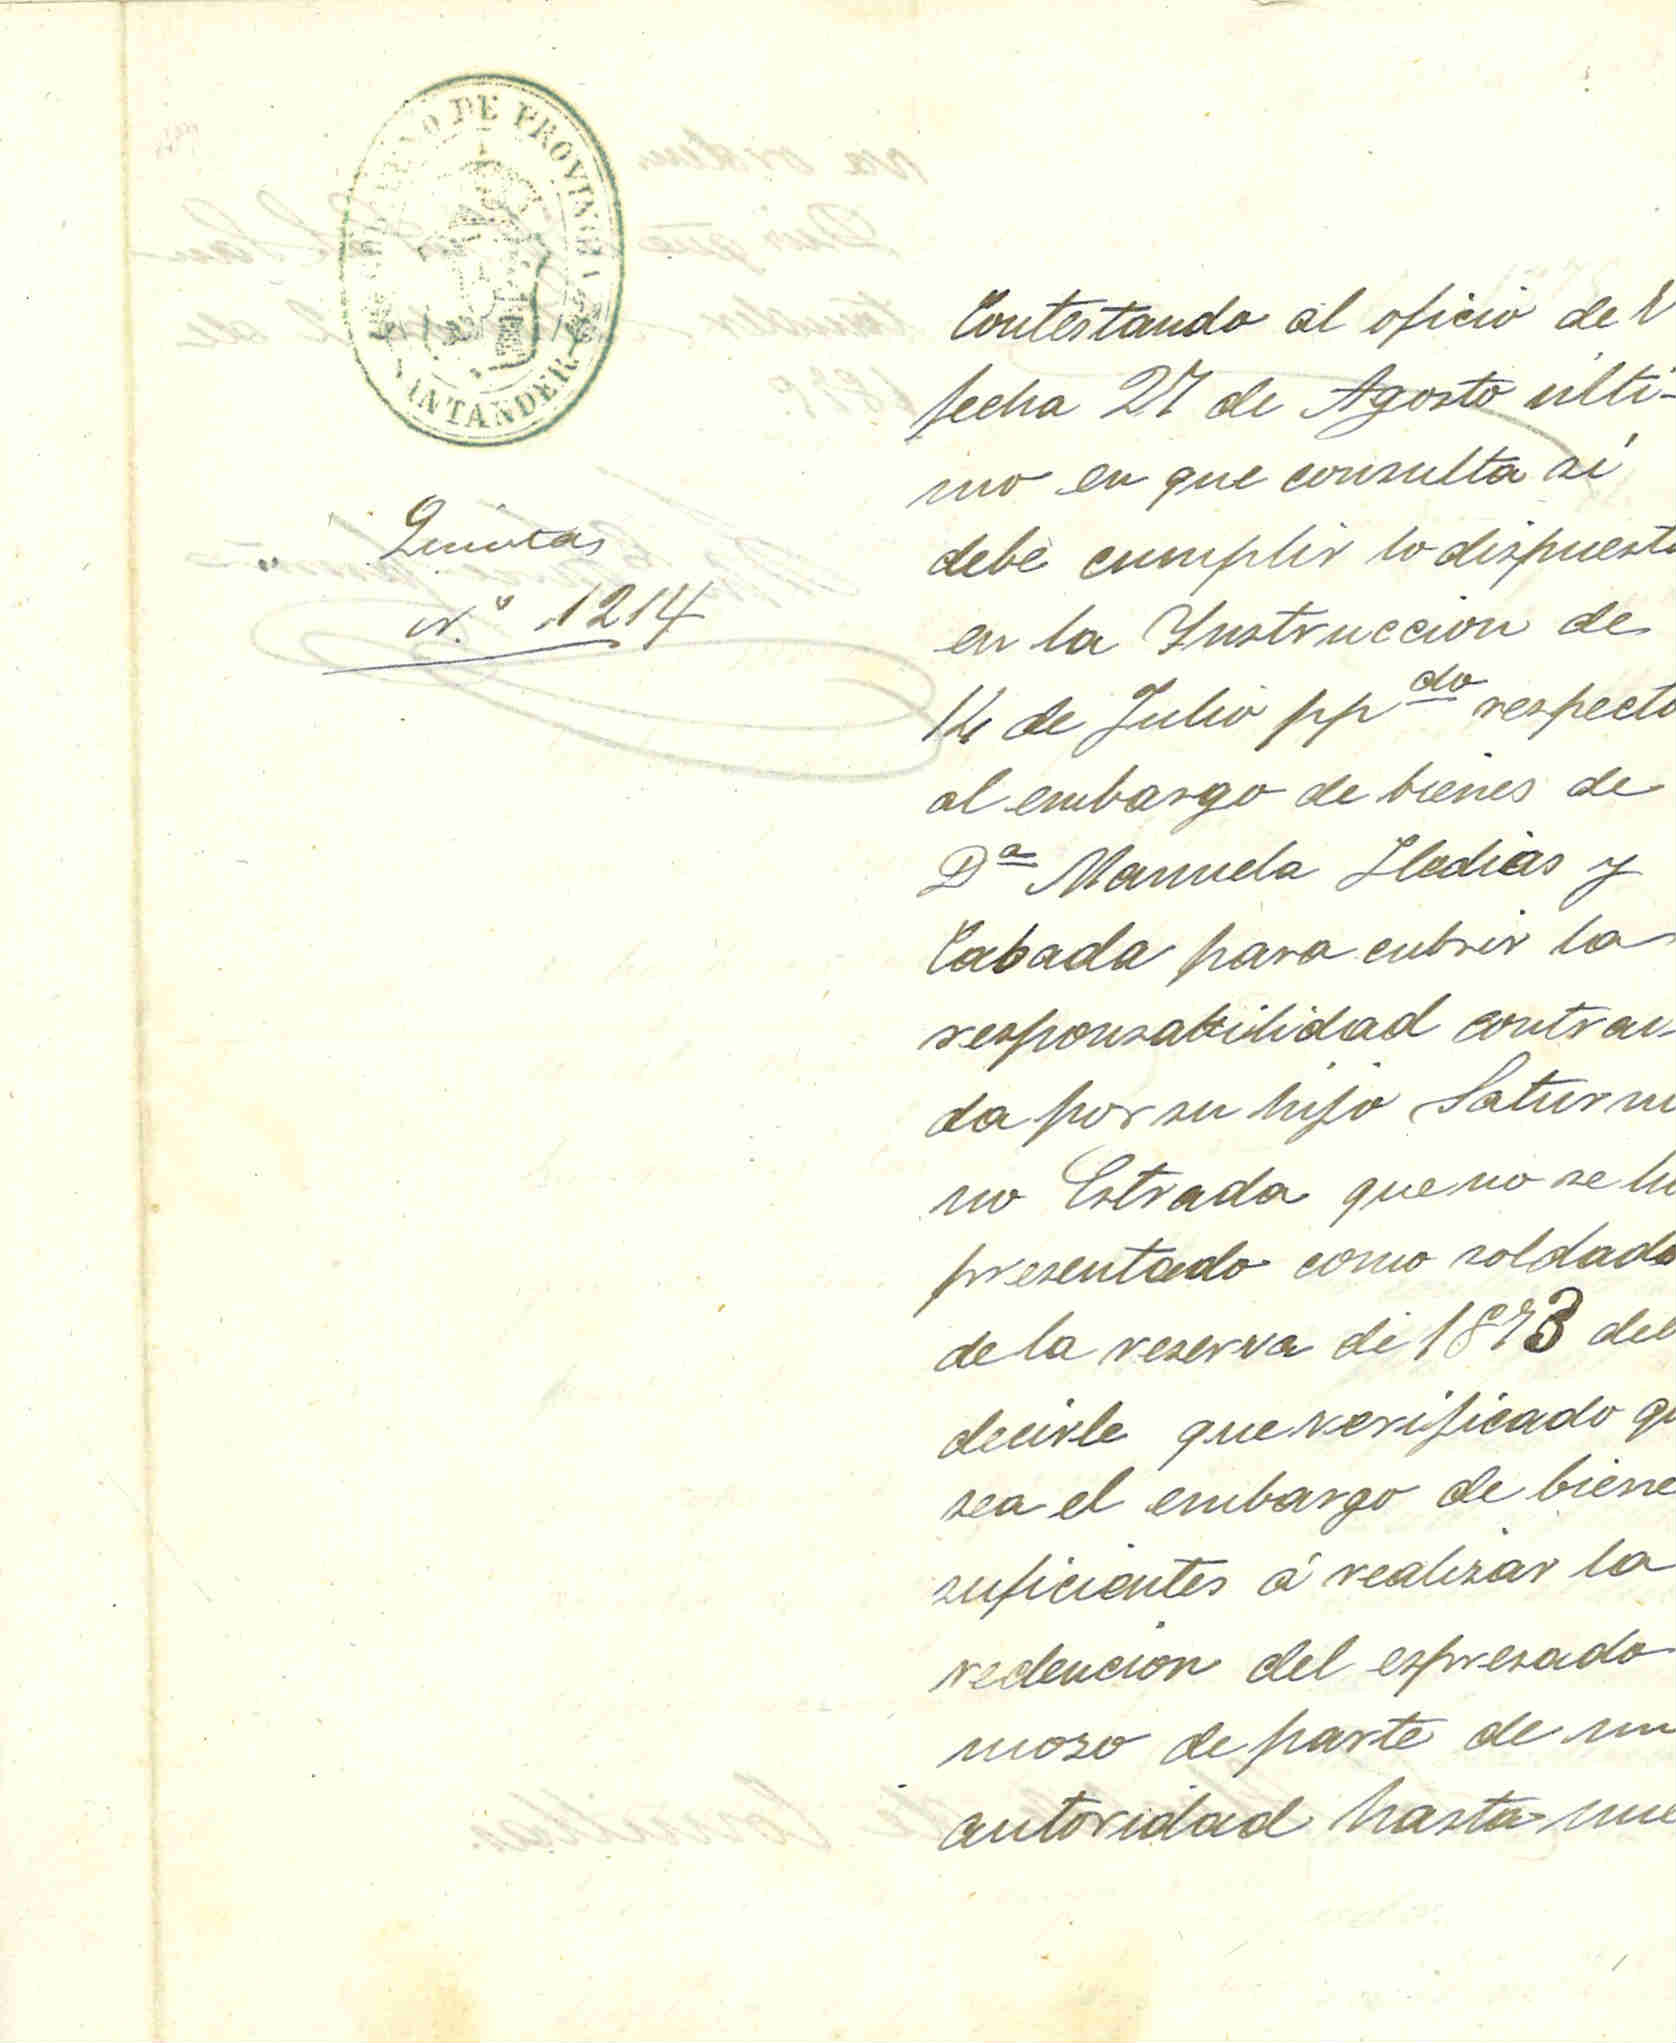 GOBIERNO DE PROVINCIA
SANTANDER
Quintas
N.º 1214
Contestando al oficio de V
fecha 27 de Agosto ulti-
mo en que consulta si
debe cumplir lo dispuesto
en la Instruccion de
14 de Julio pp do respecto
al embargo de bienes de
Dª Manuela Lledias y
Cabada para cubrir la
responsabilidad contrai-
da por su hijo Saturni
no Estrada que no se ha
presentado como soldado
de la reserva de 1873 de
decirle que verificado que
sea el embargo de biene
suficientes á realizar la
redencion del espresado
mozo de parte de mi
autoridad hasta nue